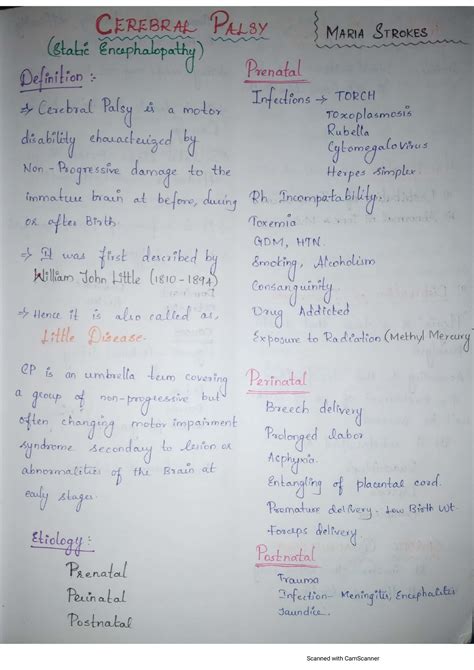 CEREBRAL PALSY
(Static Encephalopathy)
MARIA STROKES
Definition :-
⇒ Cerebral Palsy is a motor
disability characterized by
Non-Progressive damage to the
immature brain at before, during
or after Birth.
⇒ It was first described by
William John Little (1810-1894)
⇒ Hence it is also called as,
Little Disease.
CP is an umbrella term covering
a group of non-progressive but
often changing motor impairment
syndrome secondary to lesion or
abnormalities of the Brain at
early stages.
Etiology :-
Prenatal
Perinatal
Postnatal
Prenatal
Infections → TORCH
Toxoplasmosis
Rubella
Cytomegalovirus
Herpes simplex.
Rh Incompatability.
Toxemia
GDM, HTN.
Smoking, Alcoholism
Consanguinity
Drug Addicted
Exposure to Radiation (Methyl Mercury)
Perinatal
Breech delivery
Prolonged labor
Asphyxia.
Entangling of placental cord.
Premature delivery. Low Birth Wt.
Forceps delivery.
Postnatal
Trauma
Infection- Meningitis, Encephalites
Jaundice.
Scanned with CamScanner